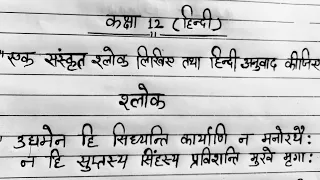 कक्षा 12 (हिन्दी)
"एक संस्कृत श्लोक लिखिए तथा हिन्दी अनुवाद कीजिए
श्लोक
उद्यमेन हि सिध्यन्ति कार्याणि न मनोरथैः
न हि सुप्तस्य सिंहस्य प्रविशन्ति मुखे मृगाः